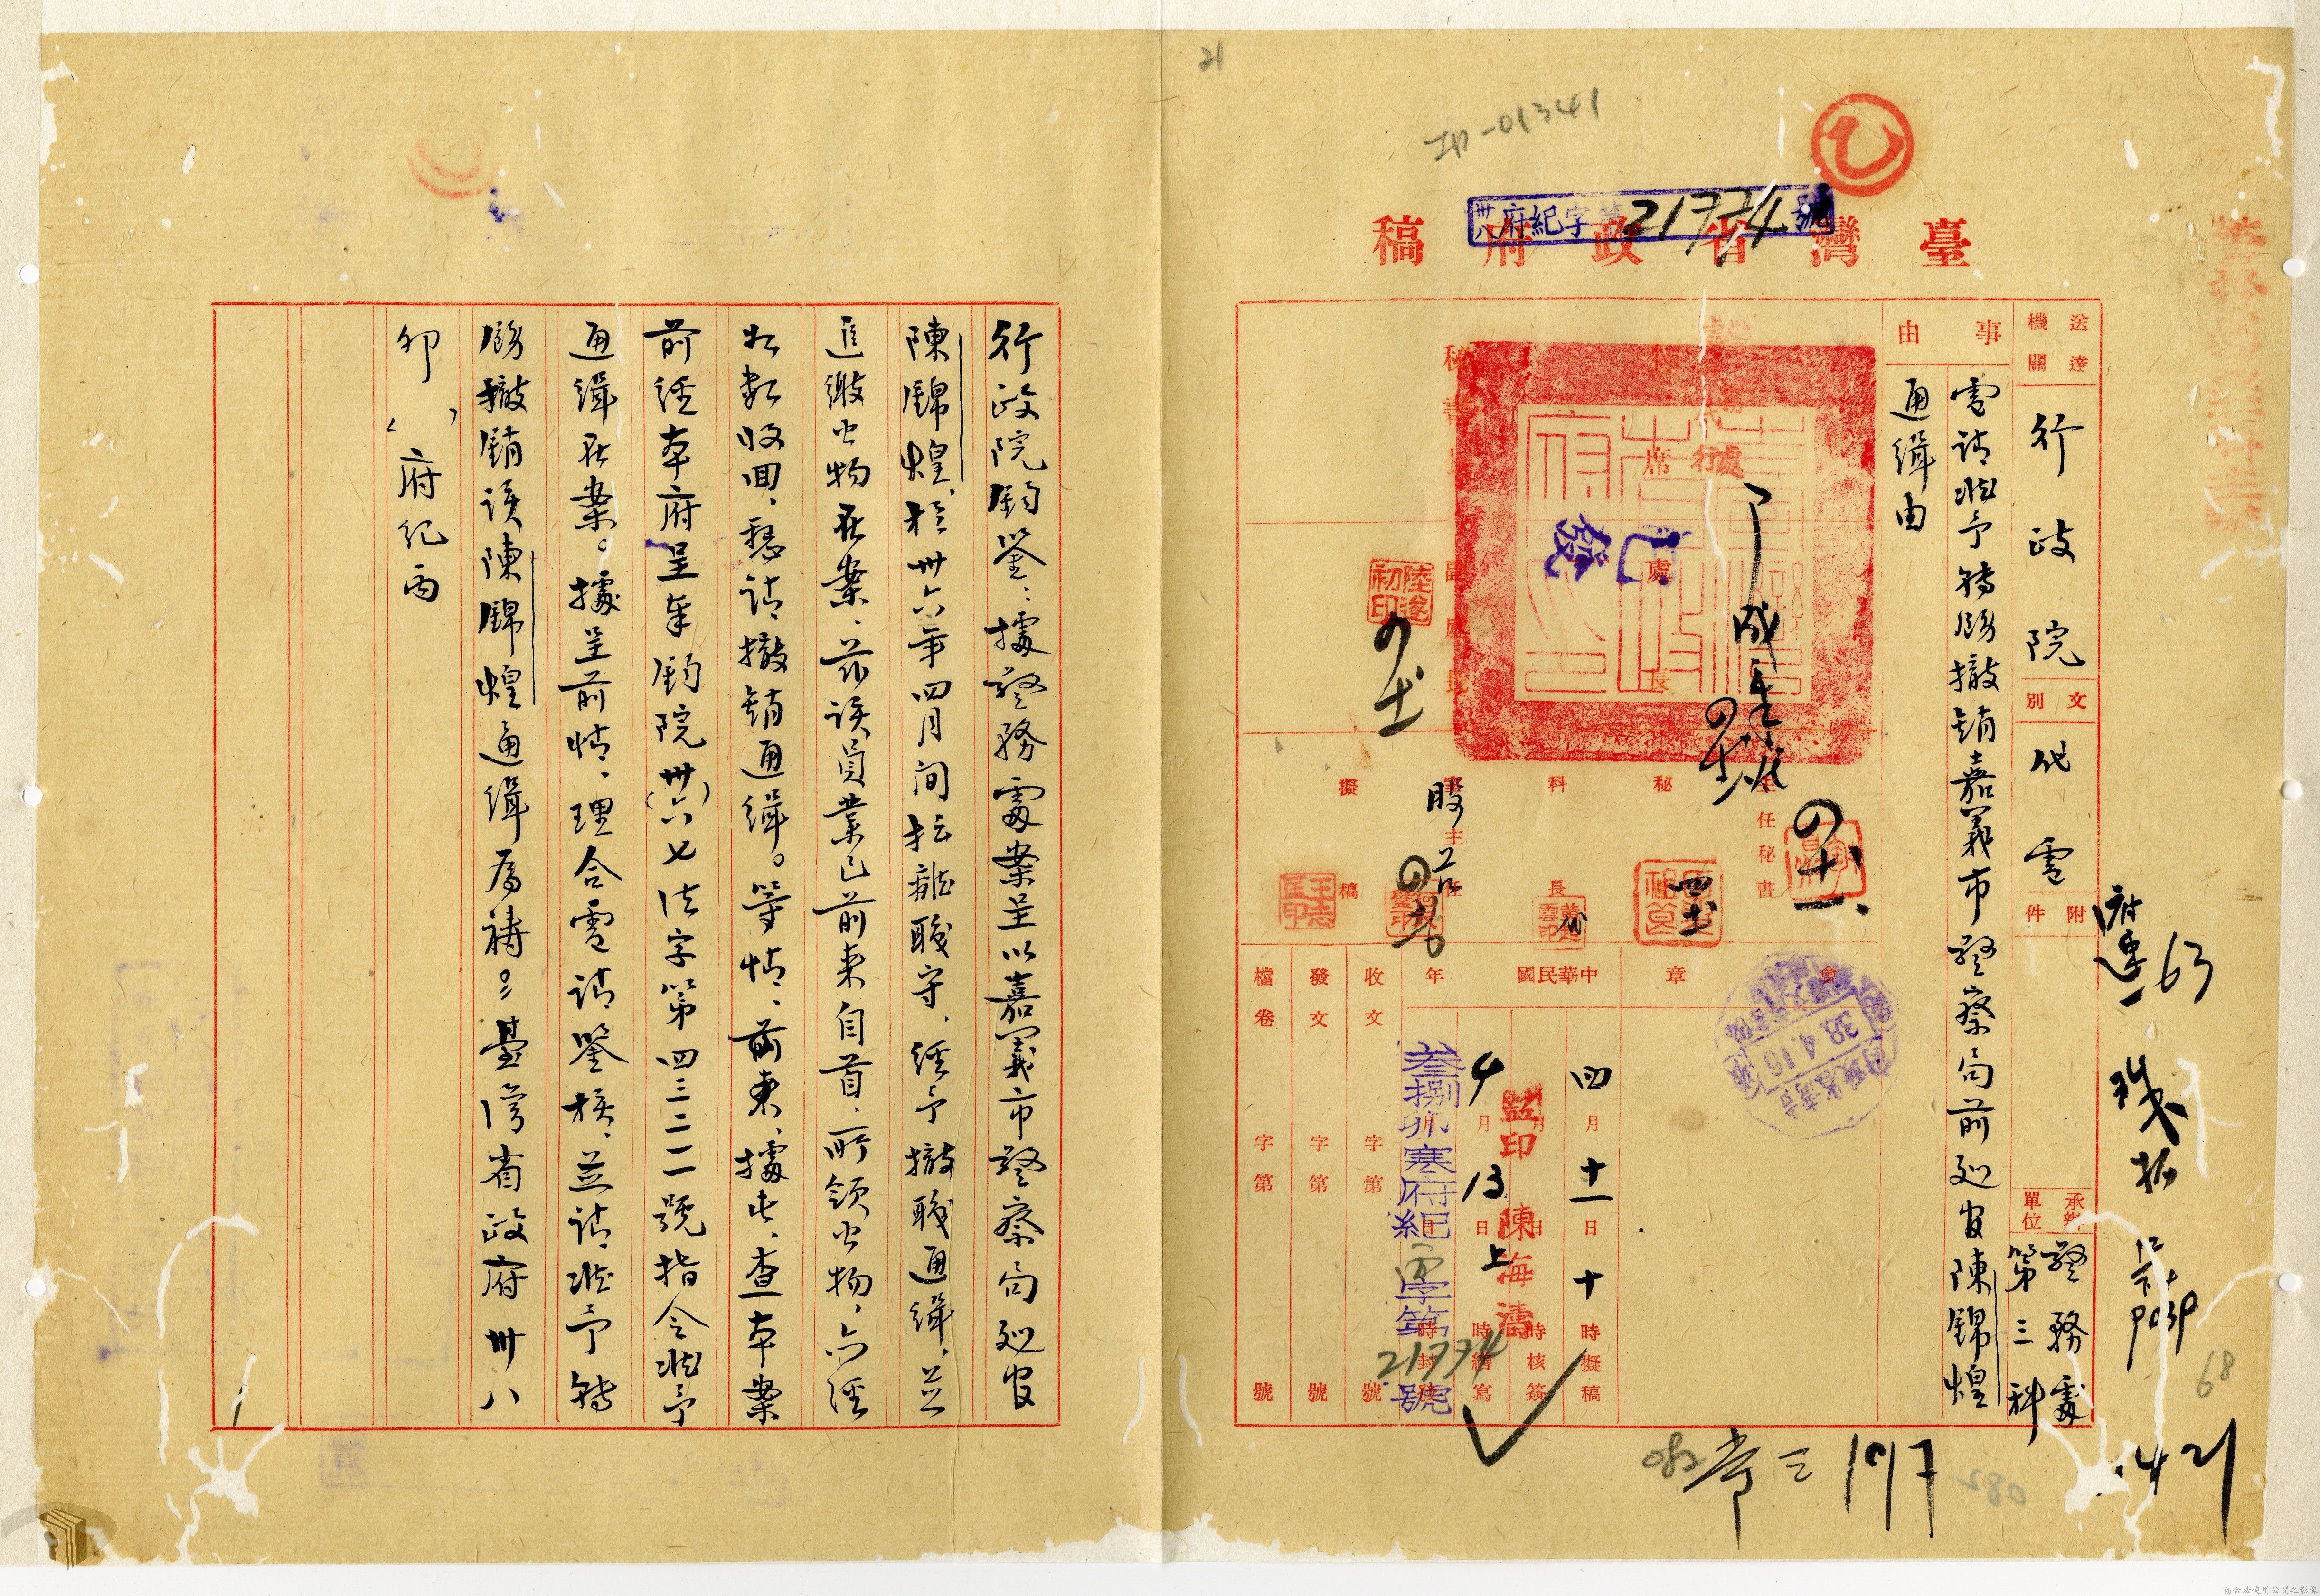 21
卅八府紀字第21774號
臺灣省政府稿
送達機關
行政院
文別
代電
附件
承辦單位
警務處
第三科
事由
電請准予轉飭撤銷嘉義市警察局前巡官陳錦煌
通緝由
主任秘書
秘
科長
股主任
擬稿
會章
38.4.16
中華民國 年
四月十一日十時擬稿
月 日 時核簽
4月13日上 時繕寫
監印 陳海濤
叁捌卯寒府紀丙字第21774號
收文 字第 號
發文 字第 號
檔卷 字第 號
陸遂初印
63
68
421
行政院鈞鑒：據警務處案呈以嘉義市警察局巡官
陳錦煌，於卅六年四月間擅離職守，經予撤職通緝，並
追繳公物在案，茲該員業已前來自首，所領公物，亦經
如數收回，懇請撤銷通緝。等情，前來，據此，查本案
前經本府呈奉鈞院卅(六)七法字第四三二一一號指令准予
通緝在案。據呈前情，理合電請鑒核，並請准予轉
飭撤銷該陳錦煌通緝為禱。臺灣省政府卅八
卯 府紀丙